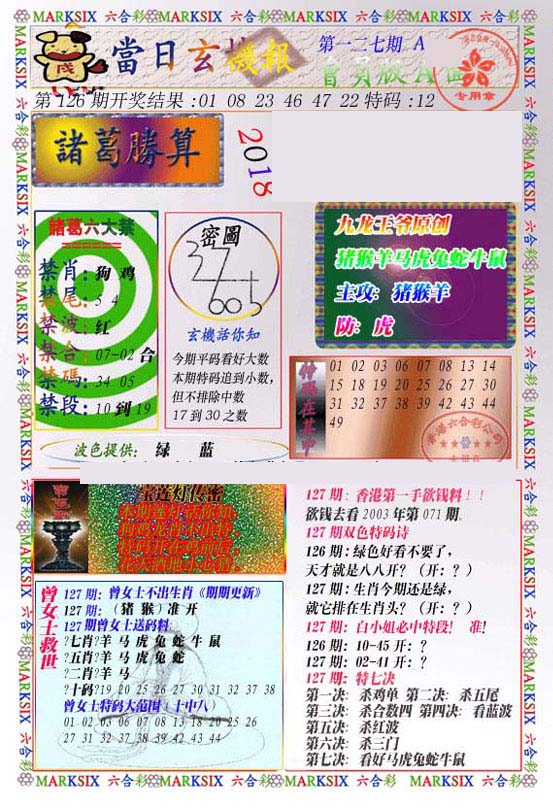 MARKSIX 六合彩 MARKSIX 六合彩 MARKSIX 六合彩 MARKSIX 六合彩 MARKSIX 六合彩
當日玄機報
第一二七期 A
會員版 A面
专用章
第126期开奖结果:01 08 23 46 47 22特码:12
諸葛勝算
2018
諸葛六大禁
禁肖:狗 鸡
禁尾:5 4
禁波:红
禁合:07-02合
禁碼:34 05
禁段:10到19
密圖
玄機話你知
今期平码看好大数
本期特码追到小数,
但不排除中数
17到30之数
九龙王爷原创
猪猴羊马虎兔蛇牛鼠
主攻: 猪猴羊
防: 虎
特码在其中
01 02 03 06 07 08 13 14
15 18 19 20 25 26 27 30
31 32 37 38 39 42 43 44
49
波色提供: 绿 蓝
宝莲灯传密
127期:曾女士不出生肖《期期更新》
127期: (猪 猴) 准 开
127期曾女士送码料:
?七肖?羊 马 虎 兔 蛇 牛 鼠
?五肖?羊 马 虎 兔 蛇
?二肖?羊 马
?十码?19 20 25 26 27 30 31 32 37 38
曾女士特码大范围(十中八)
01 02 03 06 07 08 13 18 20 25 26
27 31 32 37 38 39 42 43 44
曾女士救世
127期:香港第一手欲钱料!!
欲钱去看2003年第071期.
127期双色特码诗
126期:绿色好看不要了,
天才就是八八开?(开:?)
127期:生肖今期还是绿,
就它排在生肖头?(开:?)
127期:白小姐必中特段! 准!
126期: 10-45 开:?
127期: 02-41 开:?
127期: 特七决
第一决: 杀鸡单 第二决: 杀五尾
第三决: 杀合数四 第四决: 看蓝波
第五决: 杀红波
第六决: 杀三门
第七决: 看好马虎兔蛇牛鼠
MARKSIX 六合彩 MARKSIX 六合彩 MARKSIX 六合彩 MARKSIX 六合彩 MARKSIX 六合彩